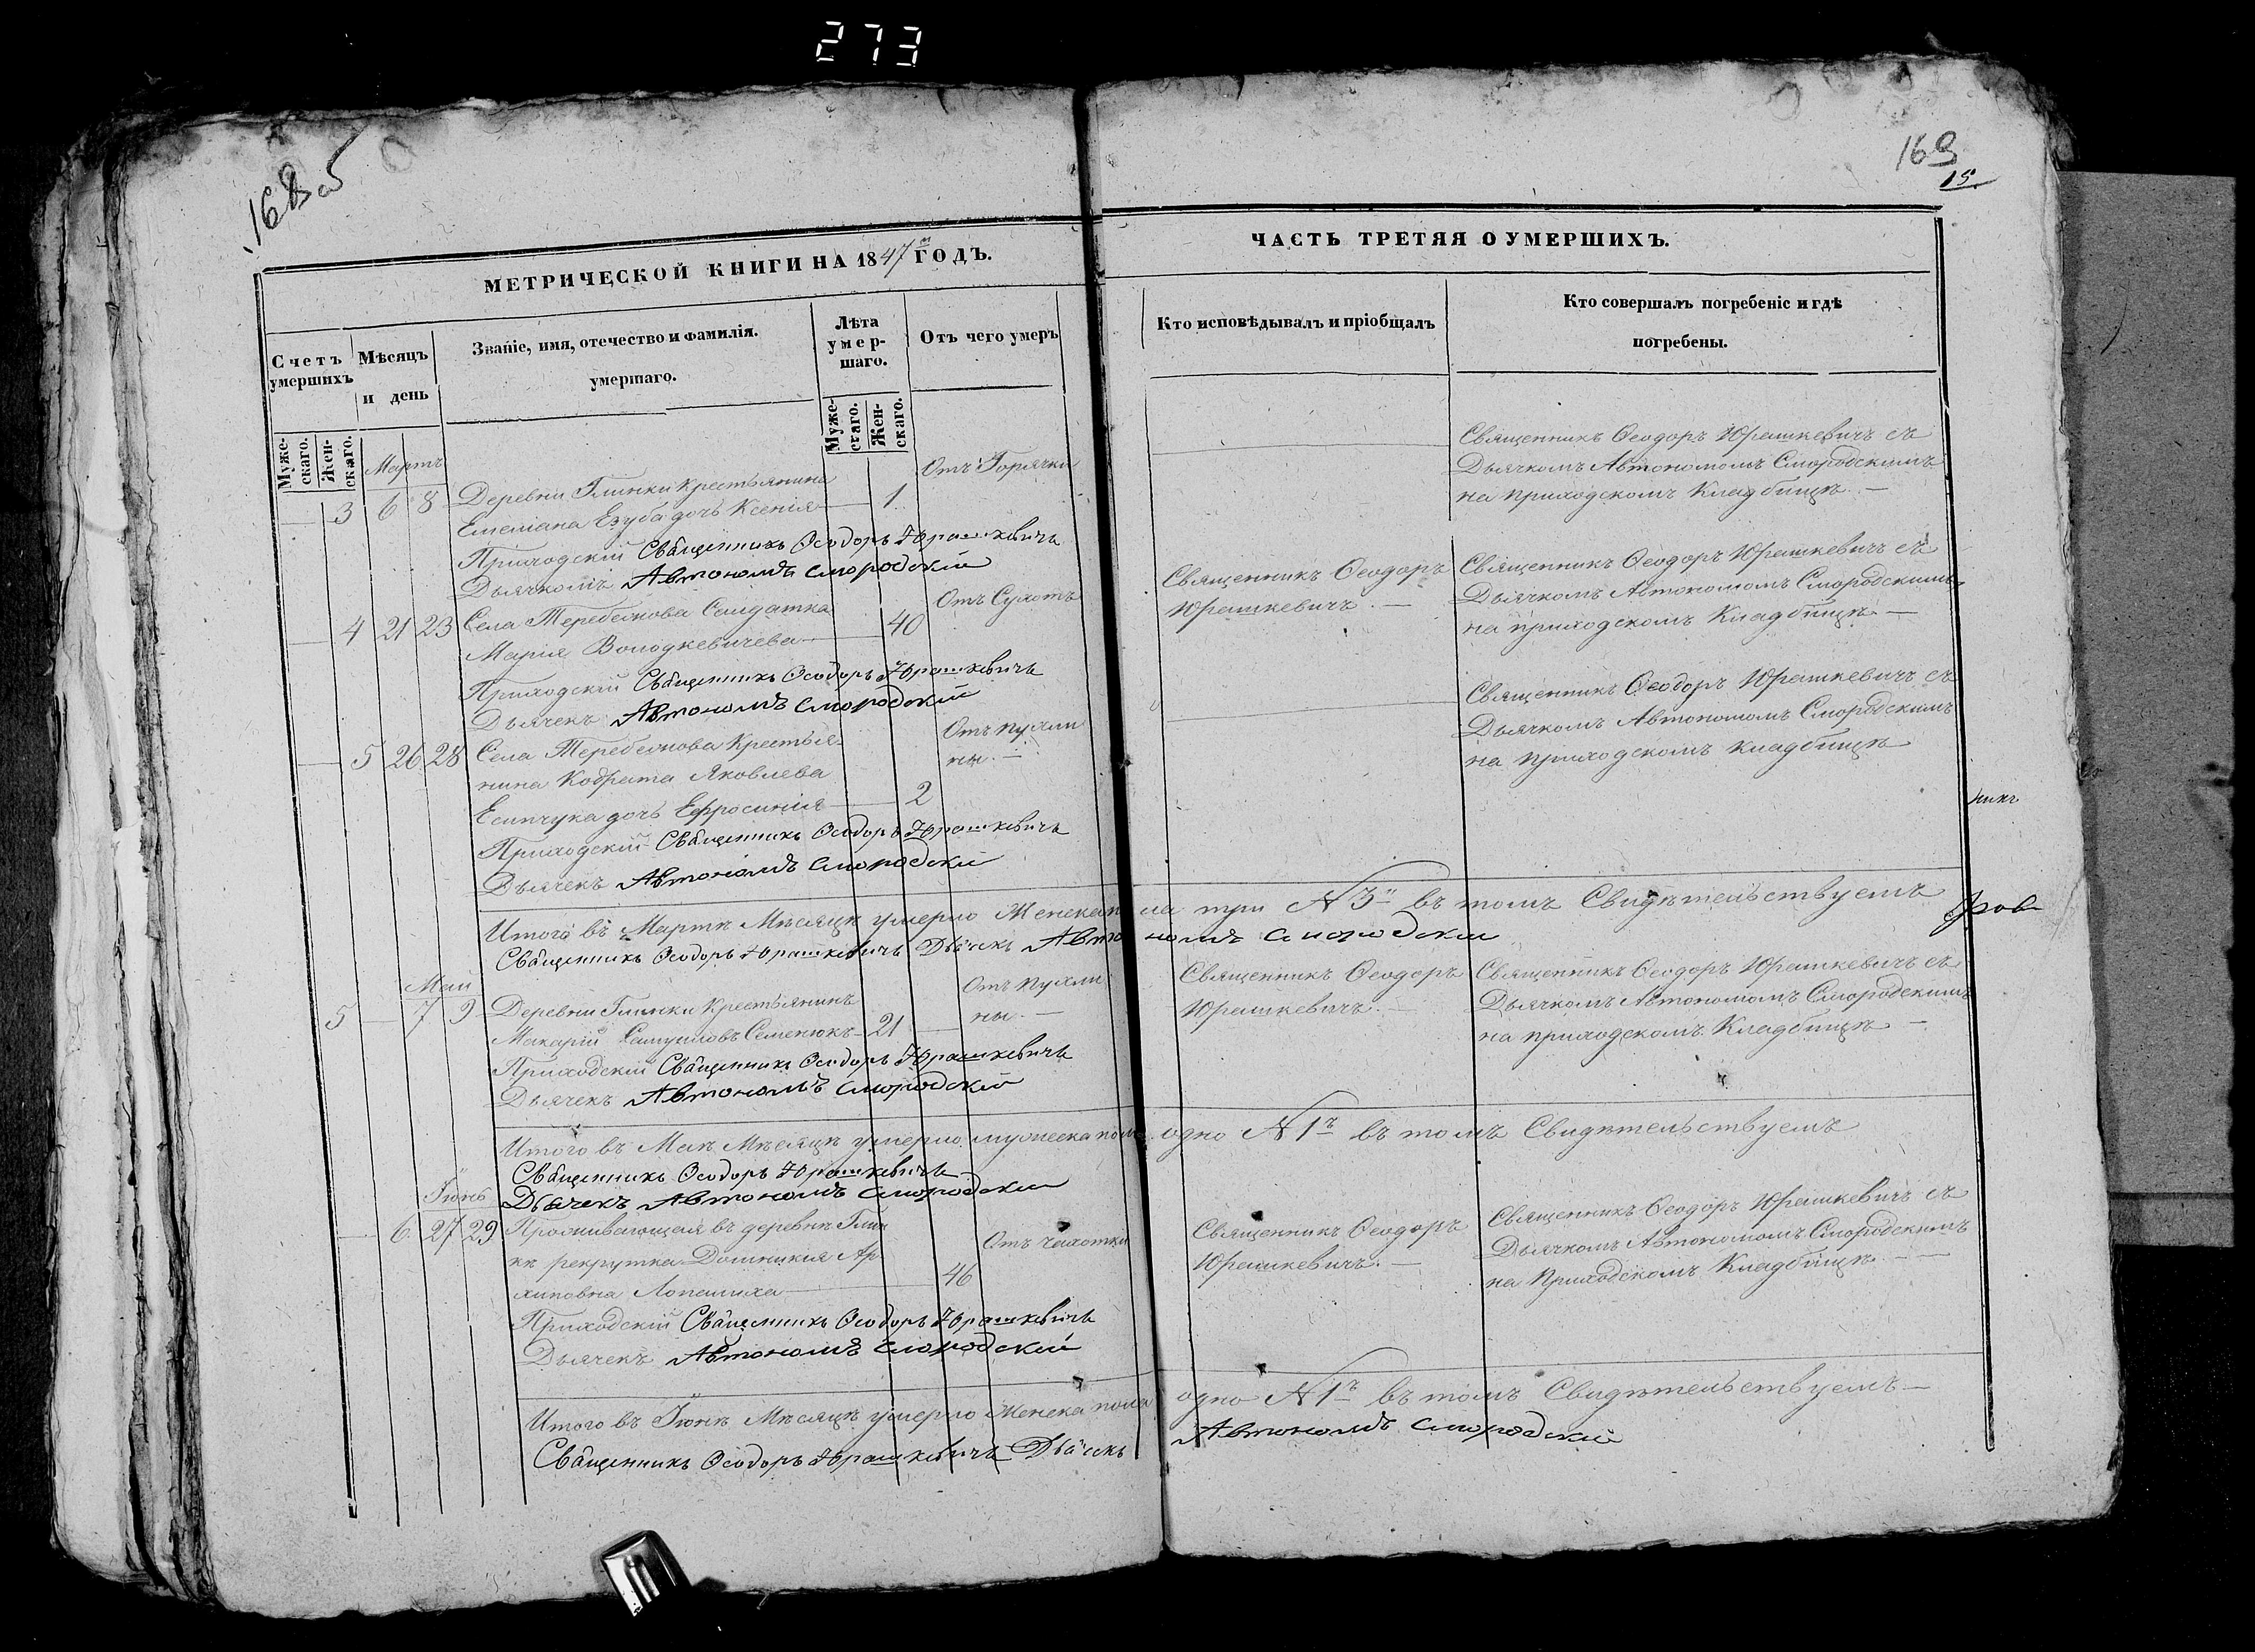 273
168 об
169
15
МЕТРИЧЕСКОЙ КНИГИ НА 1847й ГОДЪ.
ЧАСТЬ ТРЕТЯЯ О УМЕРШИХЪ.
Счетъ умершихъ
Мѣсяцъ и день
Званіе, имя, отечество и фамилія.
умершаго.
Лѣта умер-шаго.
Отъ чего умеръ
Кто исповѣдывалъ и пріобщалъ
Кто совершалъ погребеніе и гдѣ
погребены.
Муже-скаго.
Жен-скаго.
Муже-скаго.
Жен-скаго.
Мартъ
3 6 8 Деревни Глинки крестьянина
Емеліана Езуба дочь Ксенія 1
Отъ Горячки
Приходскій Священникъ Ѳеодоръ Юрашкевичъ
Дьячкомъ Автономъ Смородскій
Священникъ Ѳеодоръ Юрашкевичъ съ
Дьячкомъ Автономомъ Смородскимъ
на приходскомъ Кладбищѣ. —
4 21 23 Села Теребежова Солдатка
Марія Володкевичева 40
Отъ Сухотъ
Приходскій Священникъ Ѳеодоръ Юрашкевичъ
Дьячекъ Автономъ Смородскій
Священникъ Ѳеодоръ
Юрашкевичъ. —
Священникъ Ѳеодоръ Юрашкевичъ съ
Дьячкомъ Автономомъ Смородскимъ
на приходскомъ Кладбищѣ. —
5 26 28 Села Теребежова Крестья-
нина Кодрата Яковлева
Есипчука дочь Ефросинія 2
Отъ пухли
ны. —
Приходскій Священникъ Ѳеодоръ Юрашкевичъ
Дьячекъ Автономъ Смородскій
Священникъ Ѳеодоръ Юрашкевичъ съ
Дьячкомъ Автономомъ Смородскимъ
на приходскомъ кладбищѣ
никъ
Итого въ Мартѣ Мѣсяцѣ умерло Женска пола три N 3й въ томъ Свидѣтельствуемъ
Священникъ Ѳеодоръ Юрашкевичъ Дьячекъ Автономъ Смородскій
Май
5 7 9 Деревни Глинки Крестьянинъ
Макарій Самуиловъ Семенюкъ 21
Отъ пухли
ны. —
Приходскій Священникъ Ѳеодоръ Юрашкевичъ
Дьячекъ Автономъ Смородскій
Священникъ Ѳеодоръ
Юрашкевичъ. —
Священникъ Ѳеодоръ Юрашкевичъ съ
Дьячкомъ Автономомъ Смородскимъ
на приходскомъ Кладбищѣ —
Итого въ Маѣ Мѣсяцѣ умерло мужеска пола одно N 1ъ въ томъ Свидѣтельствуемъ
Священникъ Ѳеодоръ Юрашкевичъ
Дьячекъ Автономъ Смородскій
Іюнь
6 27 29 Проживающая въ деревнѣ Глин
кѣ рекрутка Домникія Ар
хиповна Лопашиха 46
Отъ чахотки
Приходскій Священникъ Ѳеодоръ Юрашкевичъ
Дьячекъ Автономъ Смородскій
Священникъ Ѳеодоръ
Юрашкевичъ. —
Священникъ Ѳеодоръ Юрашкевичъ съ
Дьячкомъ Автономомъ Смородскимъ
на Приходскомъ Кладбищѣ. —
Итого въ Іюнѣ Мѣсяцѣ умерло Женска пола одно N 1ъ въ томъ Свидѣтельствуемъ —
Священникъ Ѳеодоръ Юрашкевичъ Дьячекъ Автономъ Смородскій